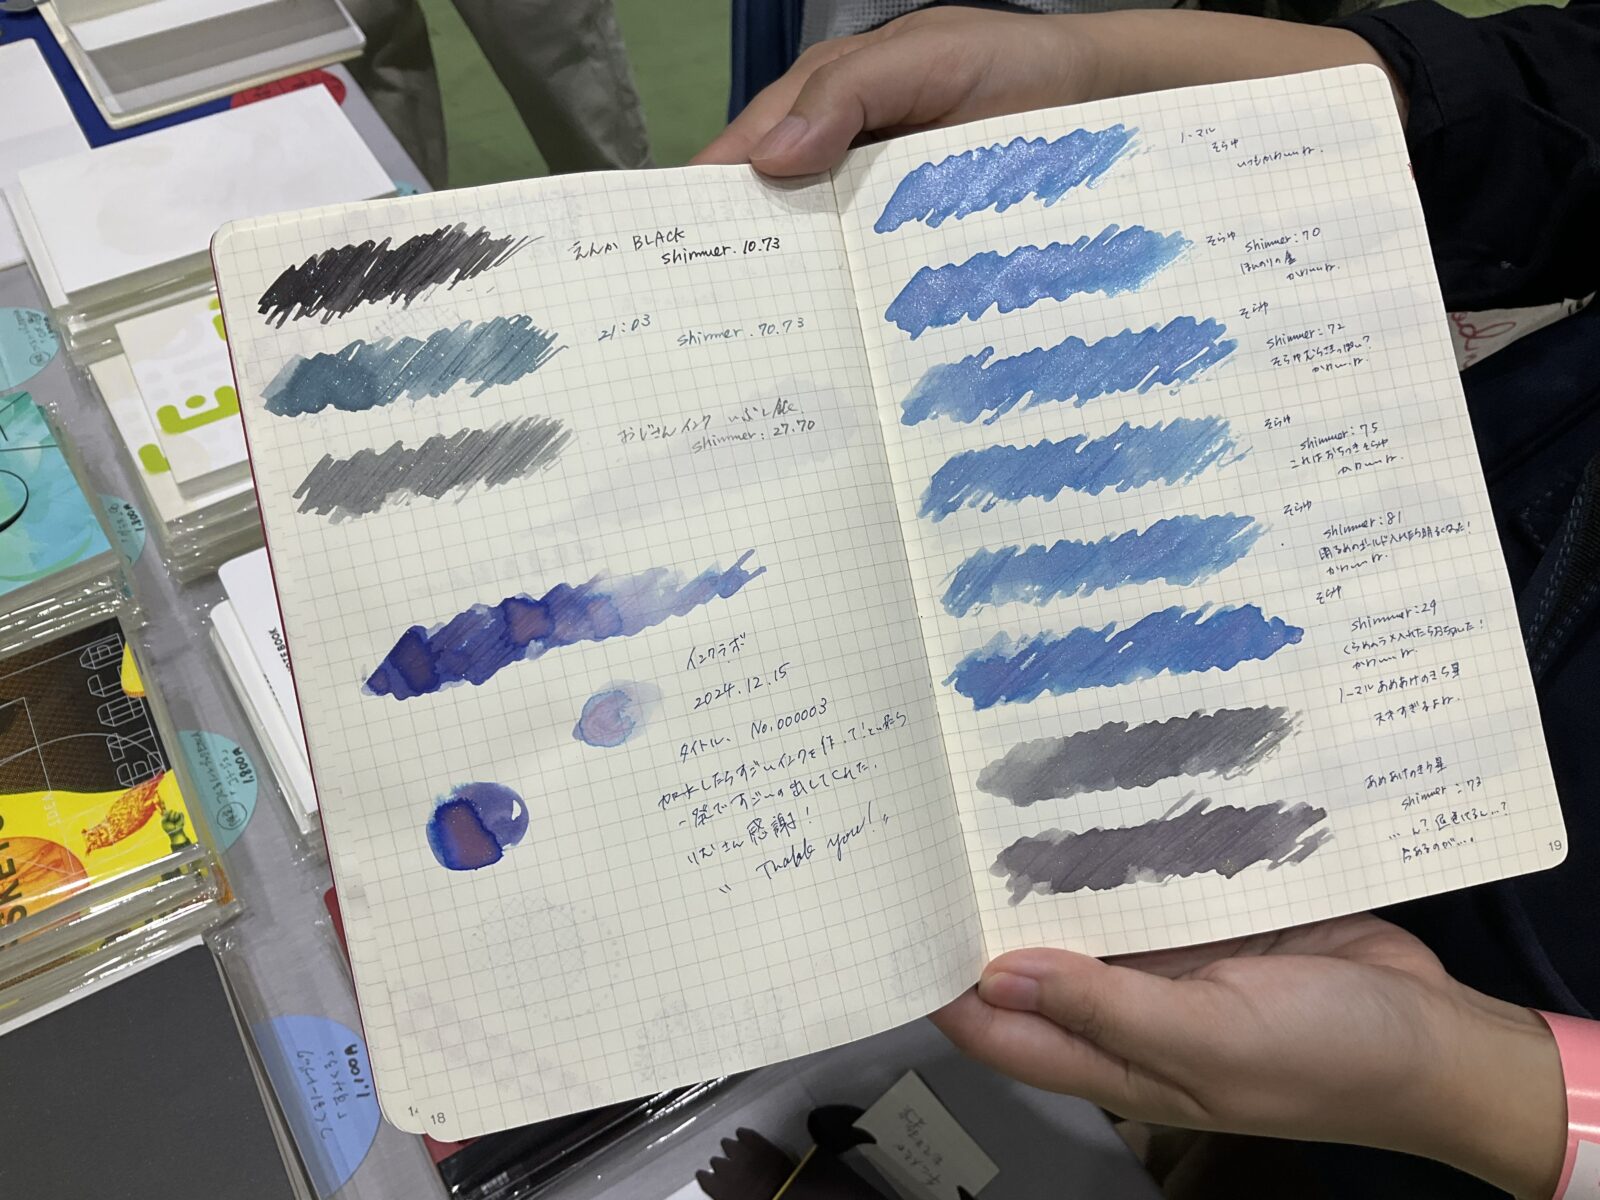 えんか BLACK
shimmer. 10.73
21:03 shimmer. 70.73
おじさんインク いぶし銀
shimmer: 27.70
インクラボ
2024.12.15
タイトル、 No.000003
加水したらすごいインクを作って!といったら
一発ですごいの出してくれた。
さん感謝!
"Thank you!"
18
ノーマル
そらゆ
いつもかわいいね.
そらゆ shimmer: 70
ほんのりの金
かわいいね.
そらゆ
shimmer: 72
かわいいね.
そらゆ
shimmer: 75
これはおちつきそらゆ
かわいいね.
そらゆ
shimmer: 81
明るめのゴールド入れたら明るくなった!
かわいいね.
そらゆ
shimmer: 29
くらめのラメ入れたら
かわいいね.
ノーマルあめあけのきら星
天才すぎるよね.
あめあけのきら星
shimmer: 73
…ん?
19
NOTEBOOK
1,800A
1,800A
1,100A